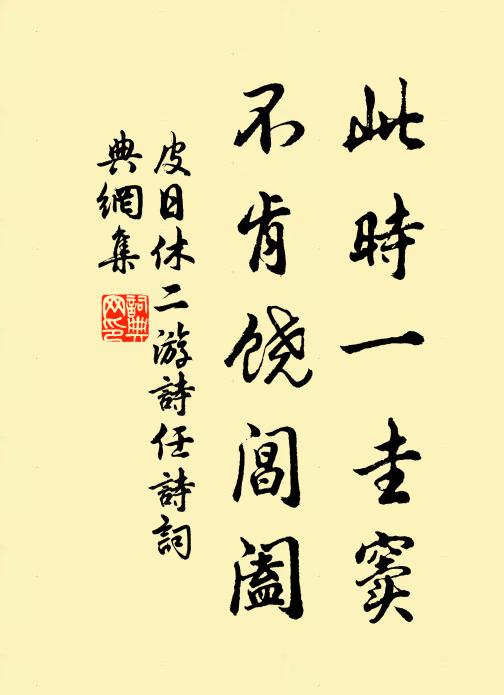 此時一圭竇
不肯饒閶闔
皮日休二游詩任詩詞
典網集
詞典
网印